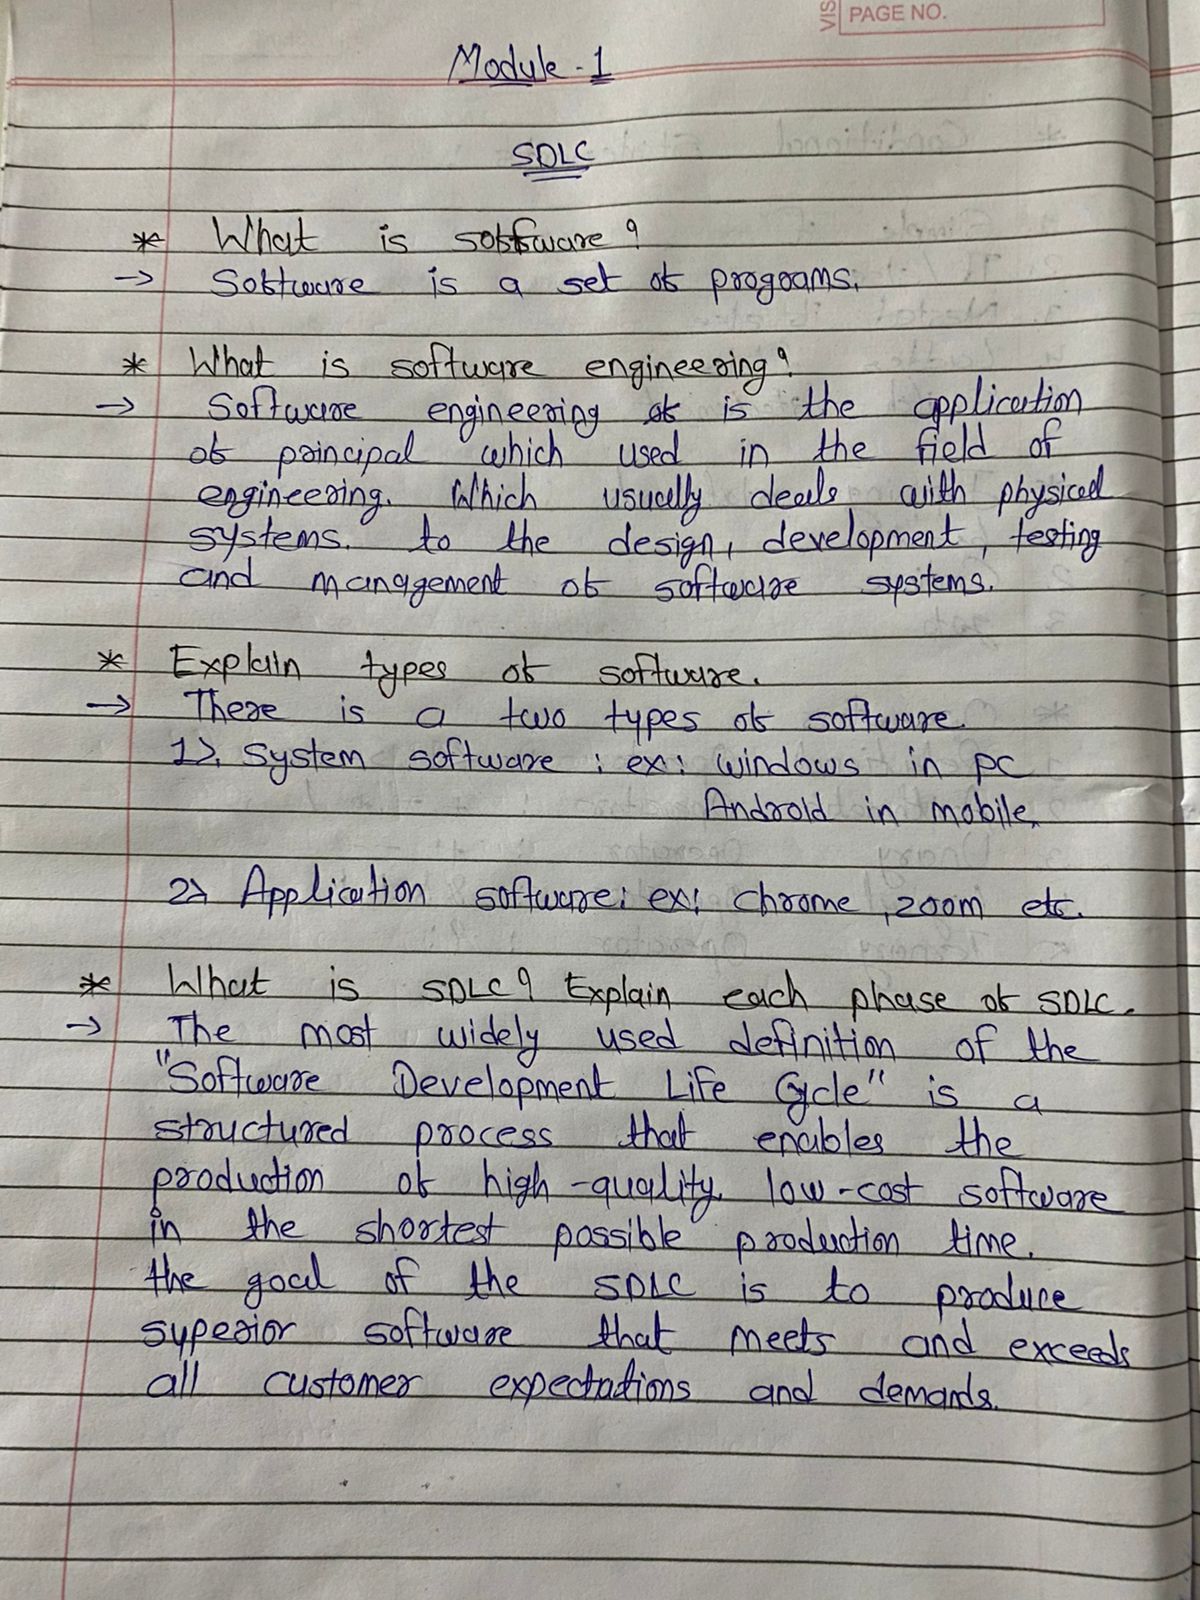 VIS
PAGE NO.
Module - 1
SDLC
* What is software ?
→ Software is a set of programs.
* What is software engineering?
→ Software engineering of is the application
of principal which used in the field of
engineering. Which usually deals with physical
systems. to the design, development, testing
and management of software systems.
* Explain types of software.
→ There is a two types of software.
1). System software : ex: windows in pc
Android in mobile.
2) Application software: ex: chrome, zoom etc.
* What is SDLC? Explain each phase of SDLC.
→ The most widely used definition of the
"Software Development Life Cycle" is a
structured process that enables the
production of high-quality, low-cost software
in the shortest possible production time.
the goal of the SDLC is to produce
syperior software that meets and exceeds
all customer expectations and demands.